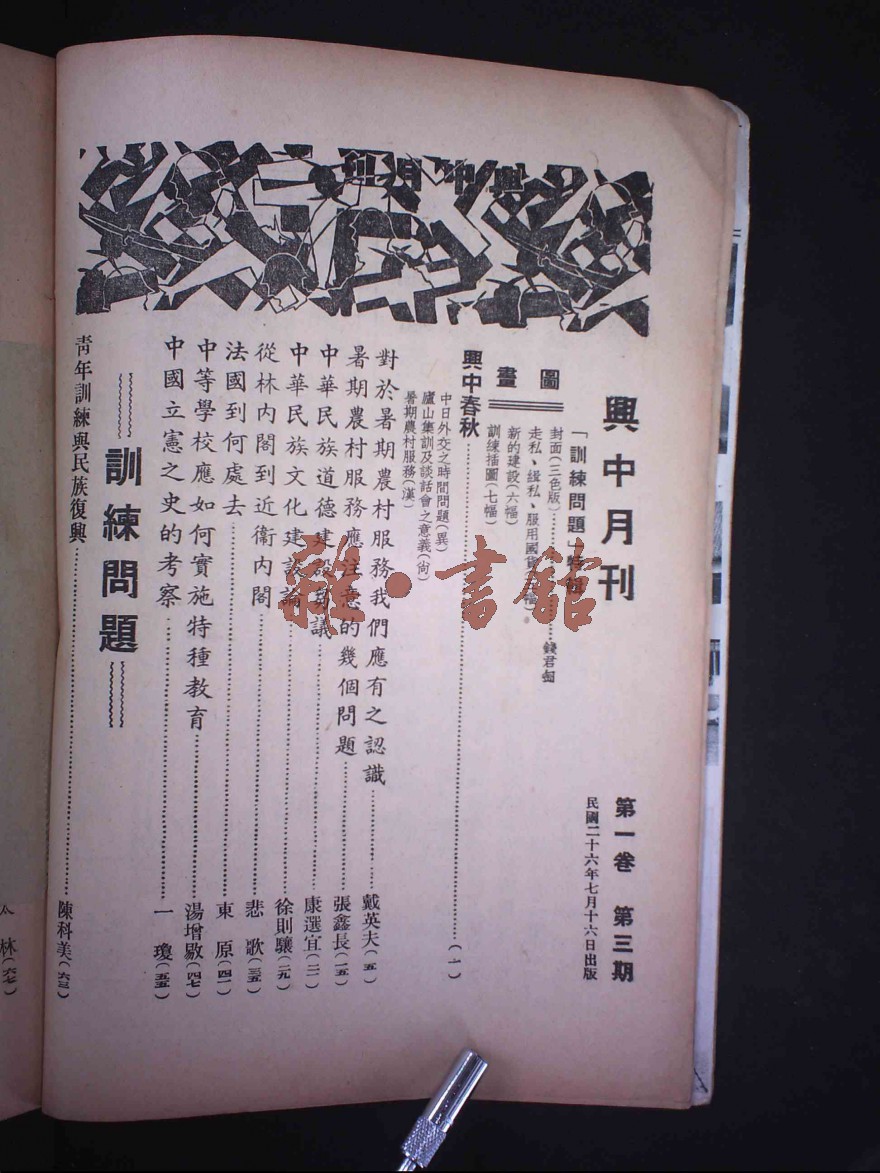 興中月刊
第一卷 第三期
民國二十六年七月十六日出版
「訓練問題」特輯
圖畫
封面(三色版)………錢君匋
走私、緝私、服用國貨
新的建設(六幅)
訓練插圖(七幅)
興中春秋………(一)
中日外交之時間問題(異)
廬山集訓及談話會之意義(尙)
暑期農村服務(漢)
對於暑期農村服務我們應有之認識………戴英夫(五)
暑期農村服務應注意的幾個問題………張鑫長(一五)
中華民族道德建設芻議………康選宜(二一)
中華民族文化建設論………徐則驤(二九)
從林內閣到近衞內閣………悲歌(三五)
法國到何處去………東原(四一)
中等學校應如何實施特種教育………湯增敭(四七)
中國立憲之史的考察………一瓊(五五)
訓練問題
靑年訓練與民族復興………陳科美(六三)
林(六七)
雜·書館